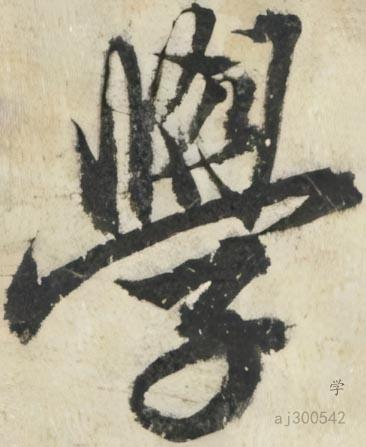 學
学
aj300542